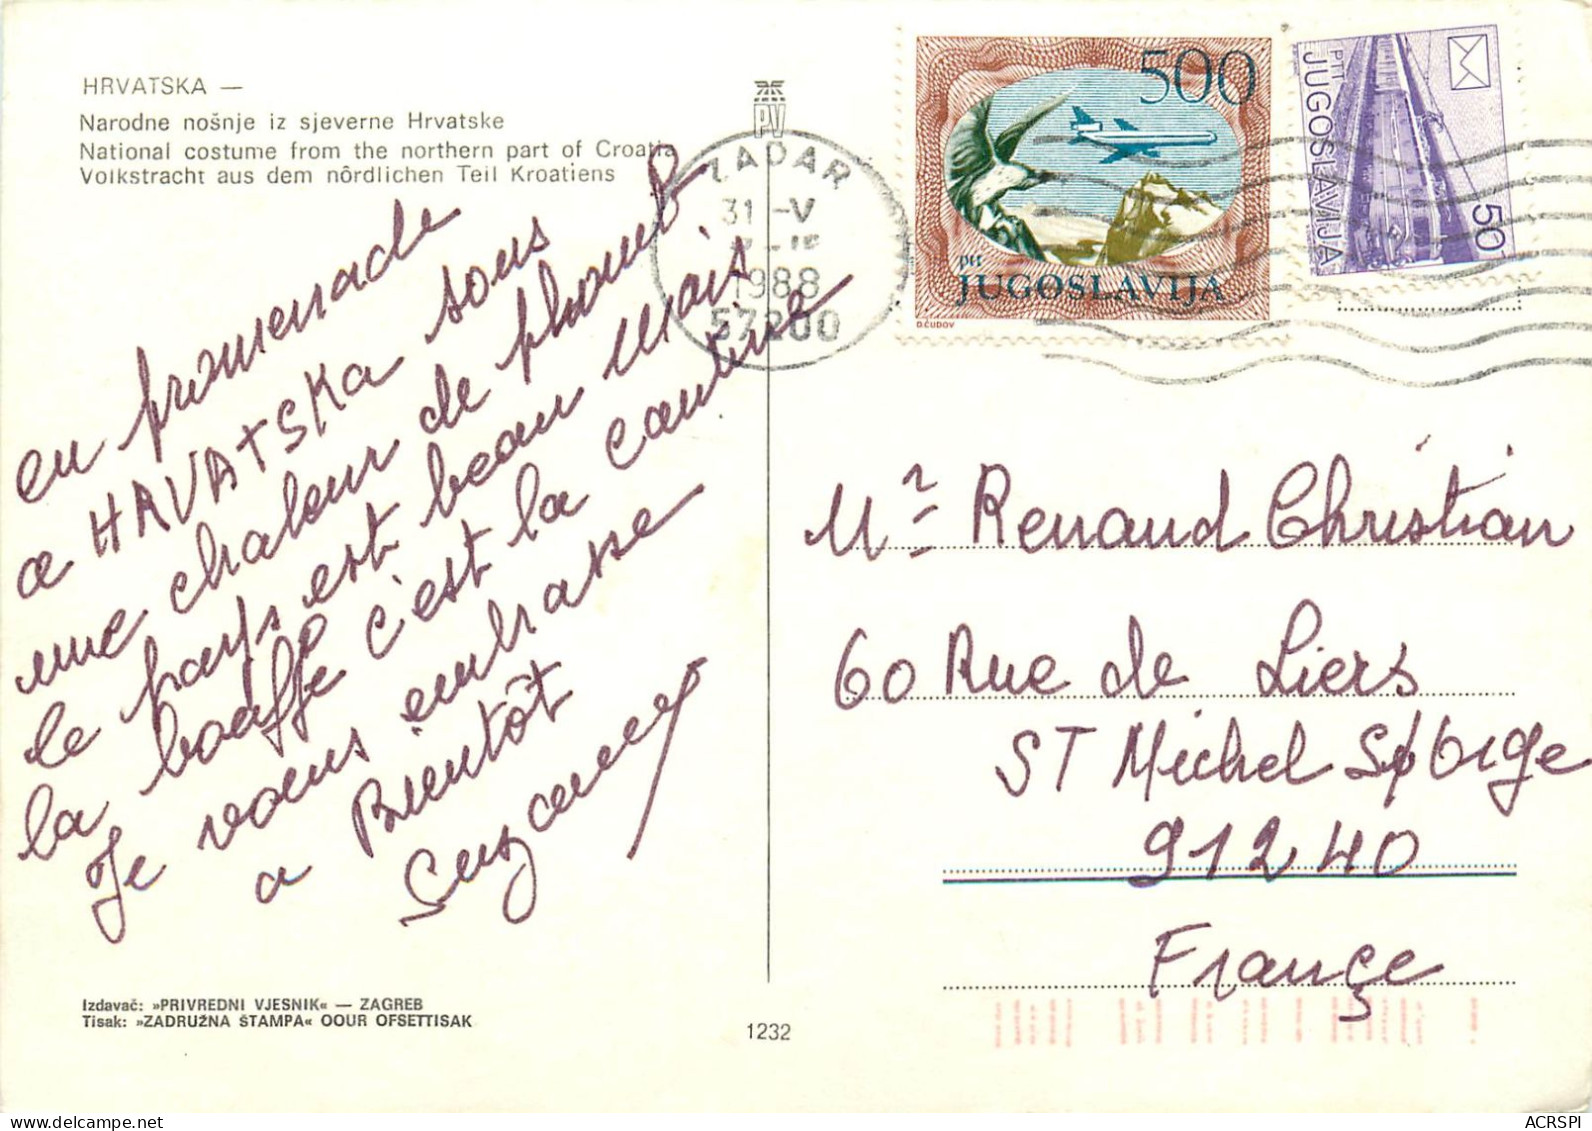 HRVATSKA —
Narodne nošnje iz sjeverne Hrvatske
National costume from the northern part of Croatia
Volkstracht aus dem nördlichen Teil Kroatiens
en promenade
a HRVATSKA sous
une chaleur de plomb
le pays est beau Mais
la bouffe c'est la cantine
Je vous embrasse
a Bientôt
Suzanne
Izdavač: »PRIVREDNI VJESNIK« — ZAGREB
Tisak: »ZADRUŽNA ŠTAMPA« OOUR OFSETTISAK
PV
1232
ZADAR
31 -V
1988
57200
500
ptt
JUGOSLAVIJA
D.ČUDOV
PTT
JUGOSLAVIJA
50
Mr Renaud Christian
60 Rue de Liers
ST Michel S/Orge
91240
Françe
ACRSPI